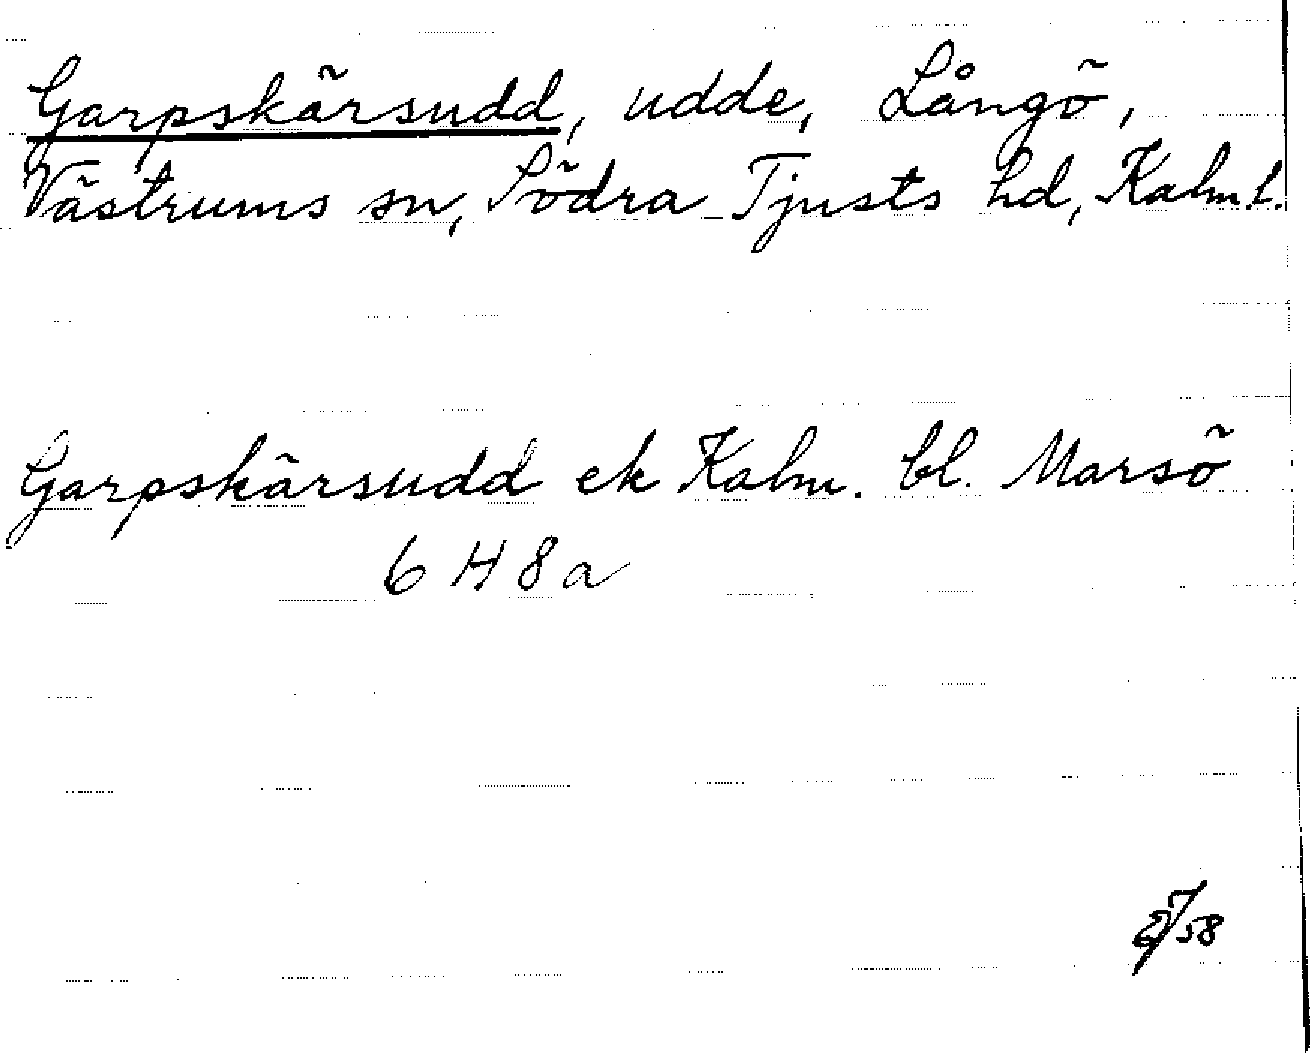 Garpskärsudd, udde, Långö,
Västrums sn, Södra Tjusts hd, Kalm.l.
Garpskärsudd ek Kalm. bl. Marsö
6 H 8 a
58